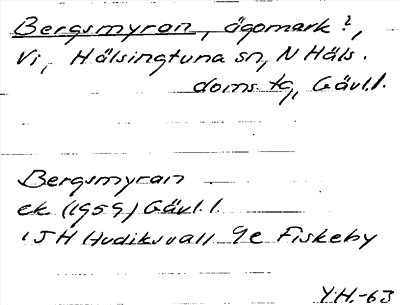 Bergsmyran, ägomark?,
Vi, Hälsingtuna sn, N Häls.
doms. tg, Gävl.l.
Bergsmyran
ek (1959) Gävl.l.
15H Hudiksvall 9e Fiskeby
Y.H.-63